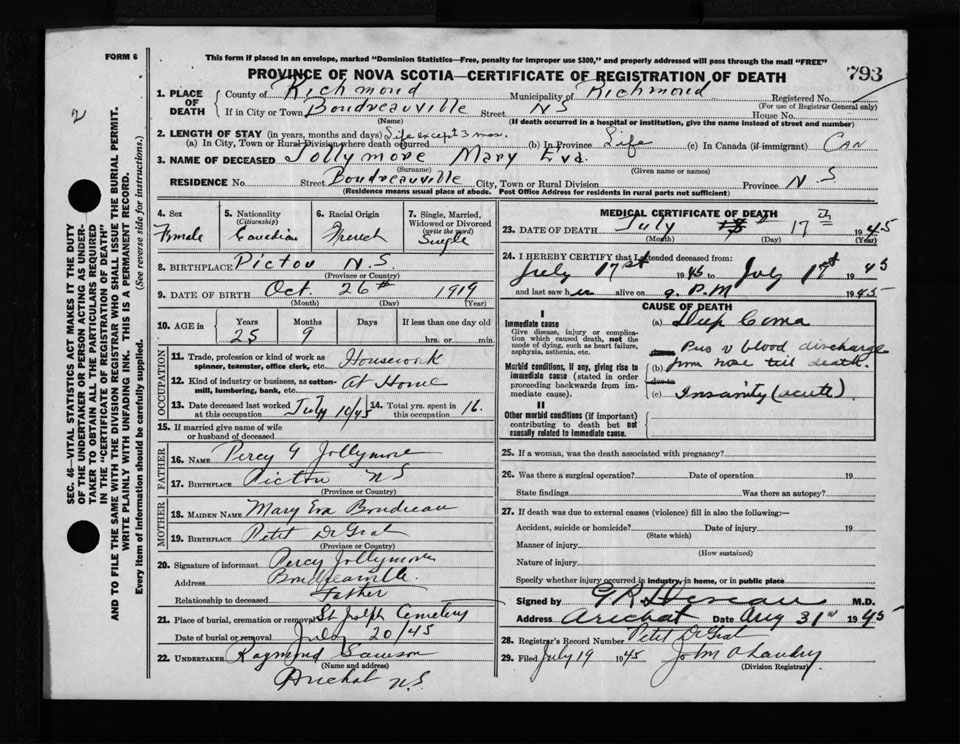 FORM 6
This form if placed in an envelope, marked "Dominion Statistics—Free, penalty for improper use $300," and properly addressed will pass through the mail "FREE"
PROVINCE OF NOVA SCOTIA—CERTIFICATE OF REGISTRATION OF DEATH
793
2
SEC. 46—VITAL STATISTICS ACT MAKES IT THE DUTY
OF THE UNDERTAKER OR PERSON ACTING AS UNDER-
TAKER TO OBTAIN ALL THE PARTICULARS REQUIRED
IN THE "CERTIFICATE OF REGISTRATION OF DEATH"
AND TO FILE THE SAME WITH THE DIVISION REGISTRAR WHO SHALL ISSUE THE BURIAL PERMIT.
WRITE PLAINLY WITH UNFADING INK. THIS IS A PERMANENT RECORD.
Every item of information should be carefully supplied. (See reverse side for instructions.)
1. PLACE OF DEATH County of Richmond Municipality of Richmond Registered No.
(For use of Registrar General only)
If in City or Town Boudreauville Street N S House No.
(Name) (If death occurred in a hospital or institution, give the name instead of street and number)
2. LENGTH OF STAY (in years, months and days) Life except 3 mos.
(a) In City, Town or Rural Division where death occurred (b) In Province Life (c) In Canada (if immigrant) Can
3. NAME OF DECEASED Jollymore Mary Eva
(Surname) (Given name or names)
RESIDENCE No. Street Boudreauville City, Town or Rural Division Province N S
(Residence means usual place of abode. Post Office Address for residents in rural parts not sufficient)
4. Sex Female
5. Nationality (Citizenship) Canadian
6. Racial Origin French
7. Single, Married, Widowed or Divorced (write the word) Single
8. BIRTHPLACE Pictou N.S.
(Province or Country)
9. DATE OF BIRTH Oct. 26th 1919
(Month) (Day) (Year)
10. AGE in Years 25 Months 9 Days If less than one day old hrs. or min.
OCCUPATION
11. Trade, profession or kind of work as spinner, teamster, office clerk, etc. Housework
12. Kind of industry or business, as cotton-mill, lumbering, bank, etc. At Home
13. Date deceased last worked at this occupation July 10/45 14. Total yrs. spent in this occupation 16.
15. If married give name of wife or husband of deceased
FATHER
16. NAME Percy G Jollymore
17. BIRTHPLACE Pictou NS
(Province or Country)
MOTHER
18. MAIDEN NAME Mary Eva Boudreau
19. BIRTHPLACE Petit DeGrat
(Province or Country)
20. Signature of informant Percy Jollymore
Address Boudreauville.
Relationship to deceased Father
21. Place of burial, cremation or removal St Joseph Cemetery
Date of burial or removal July 20/45
22. UNDERTAKER Raymond Samson
(Name and address)
Arichat N.S.
MEDICAL CERTIFICATE OF DEATH
23. DATE OF DEATH July 17th 1945
(Month) (Day) (Year)
24. I HEREBY CERTIFY that I attended deceased from:
July 17st 1945 to July 17st 1945
and last saw her alive on 9. P.M 1945
CAUSE OF DEATH
I
Immediate cause
Give disease, injury or complication which caused death, not the mode of dying, such as heart failure, asphyxia, asthenia, etc.
(a) Deep Coma
Morbid conditions, if any, giving rise to immediate cause (stated in order proceeding backwards from immediate cause).
Pus & blood discharge
(b) from nose till death.
due to
(c) Insanity (acute).
II
Other morbid conditions (if important) contributing to death but not causally related to immediate cause.
25. If a woman, was the death associated with pregnancy?
26. Was there a surgical operation? Date of operation 19
State findings Was there an autopsy?
27. If death was due to external causes (violence) fill in also the following:—
Accident, suicide or homicide? Date of injury 19
(State which)
Manner of injury
(How sustained)
Nature of injury
Specify whether injury occurred in industry, in home, or in public place
Signed by M.D.
Address Arichat Date Aug 31st 1945
28. Registrar's Record Number Petit DeGrat
29. Filed July 19 1945 John A Landry
(Division Registrar)